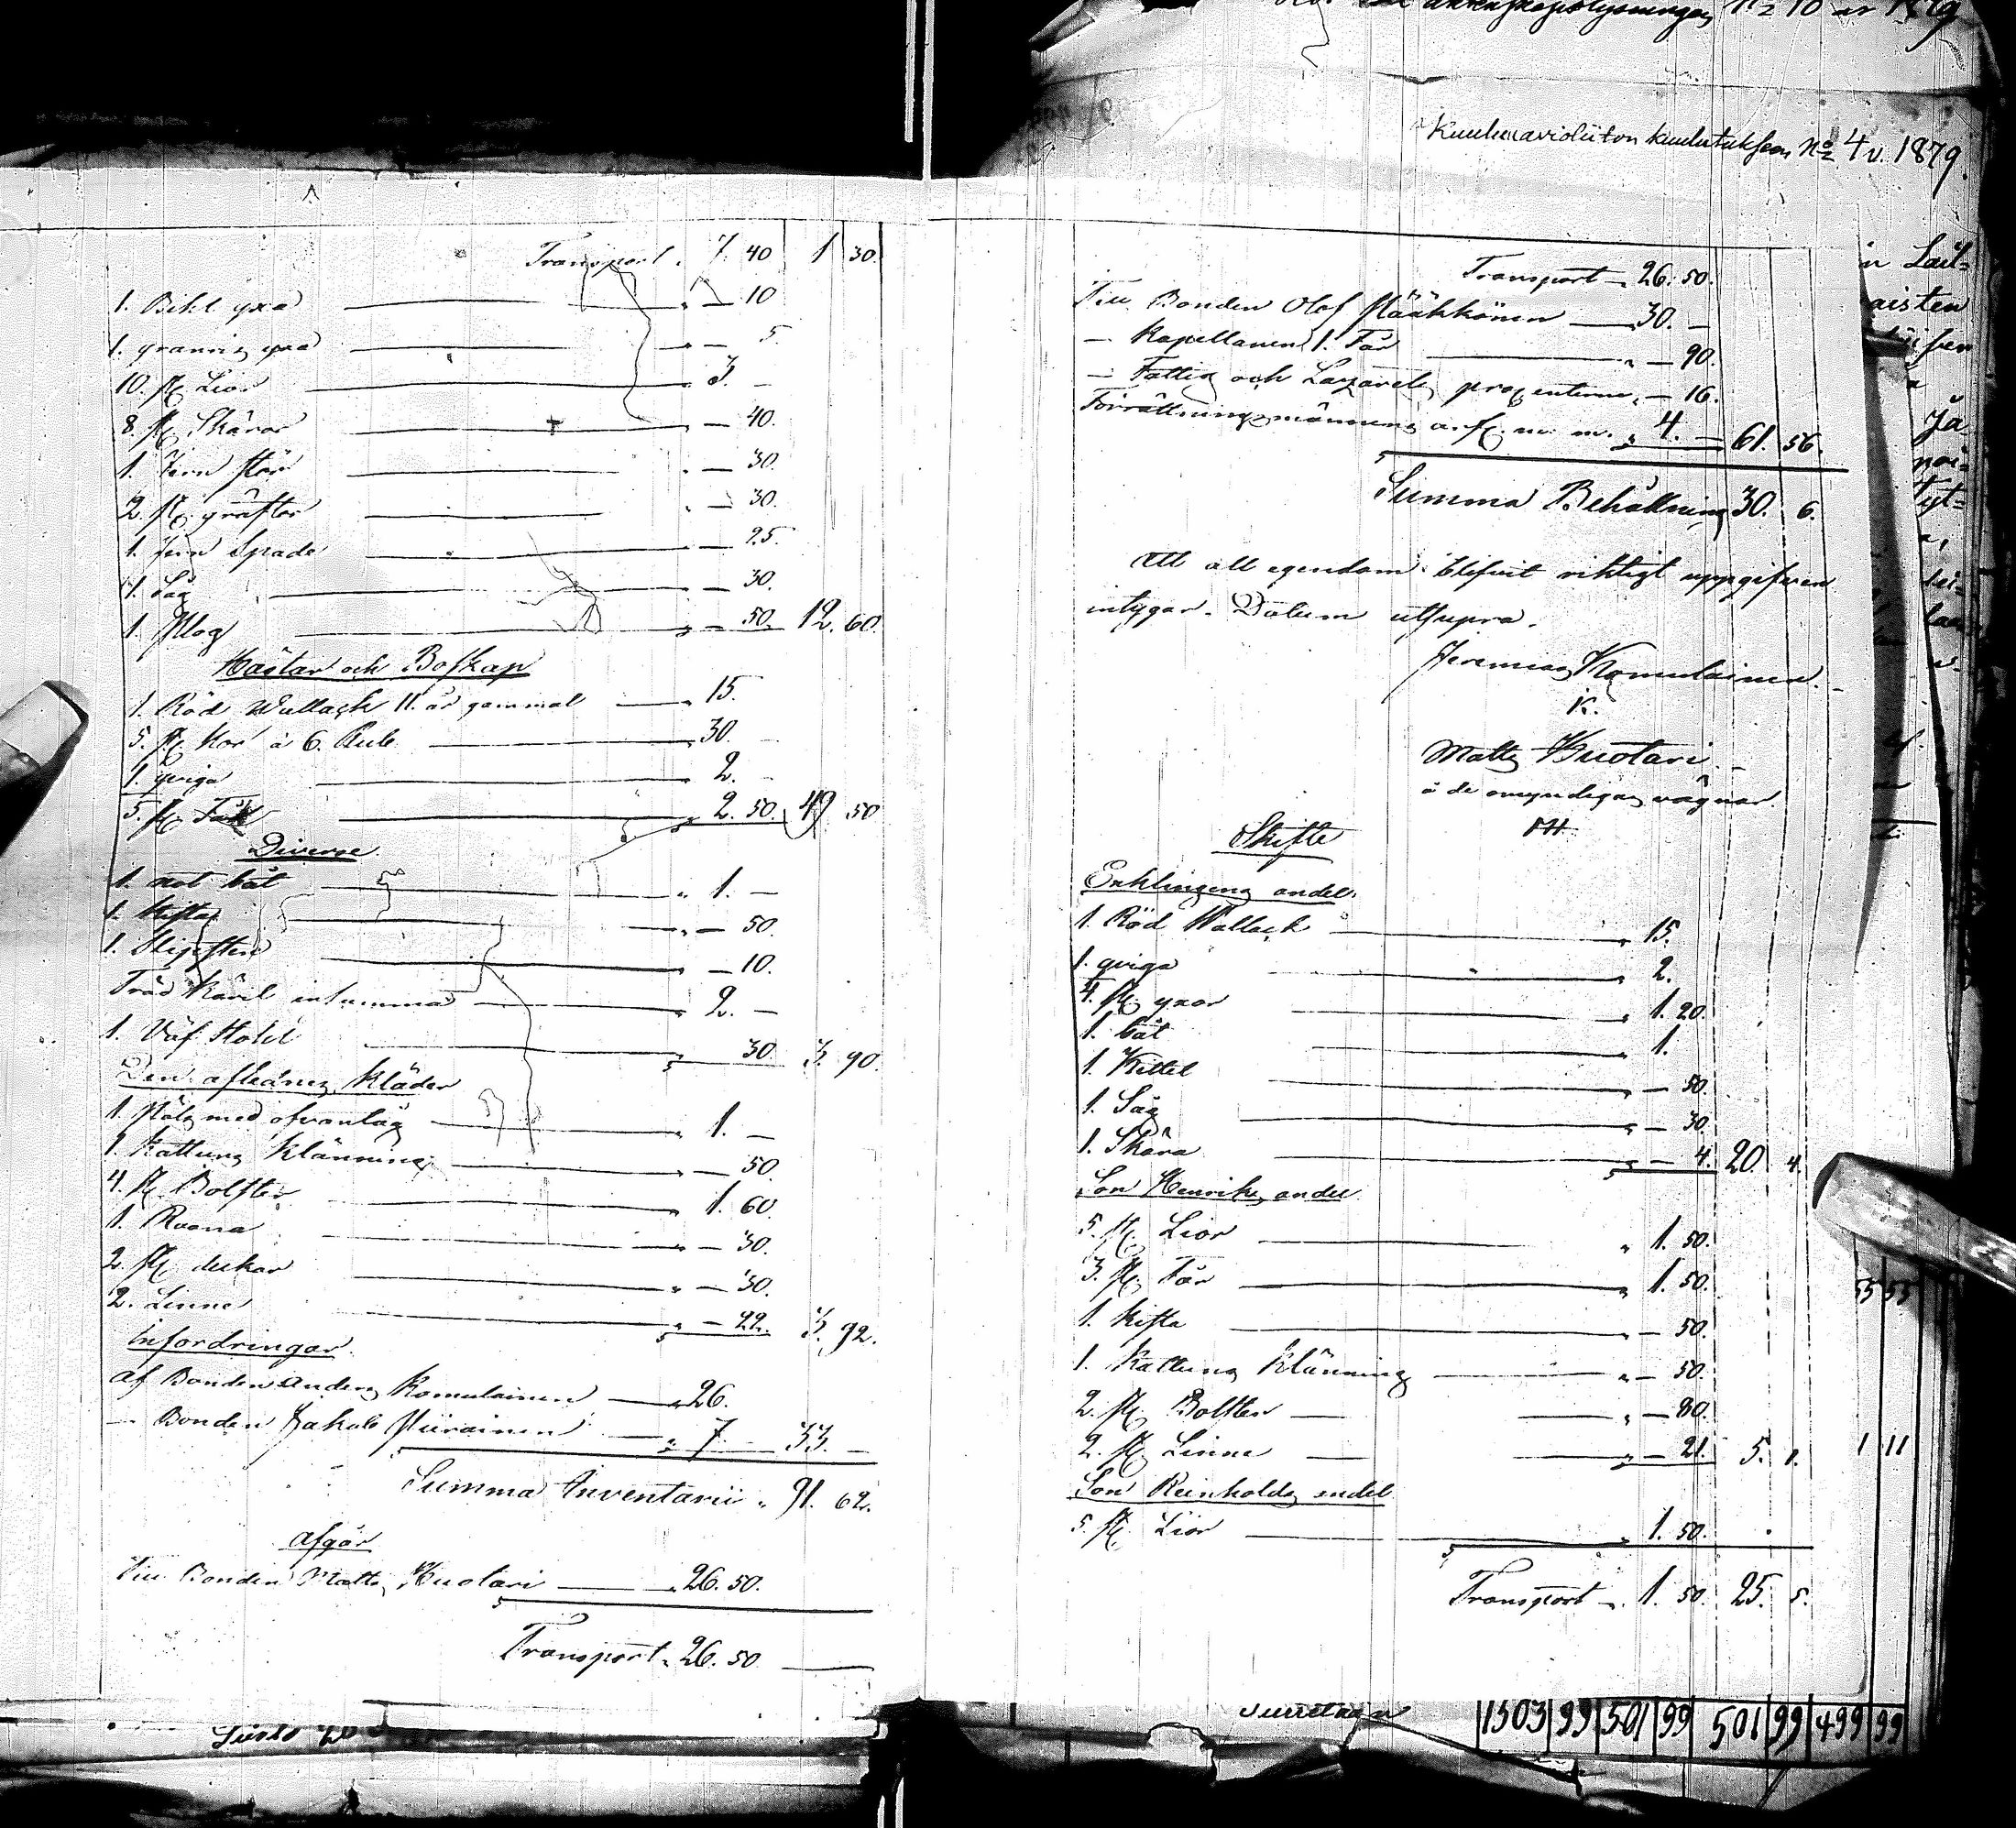 Transport 7. 40 1 30.
1. Bihl yxa — 10
1. yxa — 5
10. st. Lior 3. —
8. st. Skäror — 40.
1. Jern stör — 30.
2. st. gräftor — 30.
1. Jern Spade — 25.
1. Såg — 30.
1. Plog — 50. 12. 60.
Hästar och Boskap
1. Röd Wallack 11. år gammal 15.
5. st. Kor à 6. Rub. 30. —
1. qviga 2. —
5. st. Får 2. 50. 49 50
Diverse
1. not båt 1. —
1. Kista — 50.
1. Slipsten — 10.
Träd Käril in summa 2. —
1. Väf Stohl 30. 3. 90.
Den aflednes Kläder
1. Päls med ofvantÿg 1. —
1. Kattuns Klänning — 50.
4. st. Bolster 1. 60.
1. Ruana — 30.
2. st. dukar — 30.
2. Linne — 22. 3. 92.
Infordringar
af Bonden Anders Komulainen 26.
— Bonden Jakob Piirainen 7. — 33. —
Summa Inventarii 91. 62.
Afgår
Till Bonden Matts Huotari 26. 50.
Transport 26. 50
Kuulutuksen No 4 v. 1879.
Transport 26. 50.
Till Bonden Olof Pääkkönen 30. —
— Kapellanen 1. Får — 90.
— Fattig och Lazarets procenterne — 16.
Förrättningsmännens a. st. m. m. 4. — 61. 56.
Summa Behållning 30. 6.
Att all egendom blifvit riktigt uppgifven
intygar. Datum utsupra.
Jeremias Komulainen
K.
Matts Huotari
å de omyndigas vägnar
Skifte
Enklingens andel.
1. Röd Wallack 15.
1. qviga 2.
4. st. yxor 1. 20.
1. båt 1.
1. Kittel — 50.
1. Såg — 30
1. Skära — 4. 20. 4.
Son Henriks andel
5. st. Lior 1. 50.
3. st. Får 1. 50.
1. Kista — 50.
1. Kattuns Klänning — 50.
2. st. Bolster — 80.
2. st. Linne — 21. 5. 1.
Son Reinholds andel
5. st. Lior 1. 50.
Transport 1. 50 25. 5.
1503 99 501 99 501 99 499 99